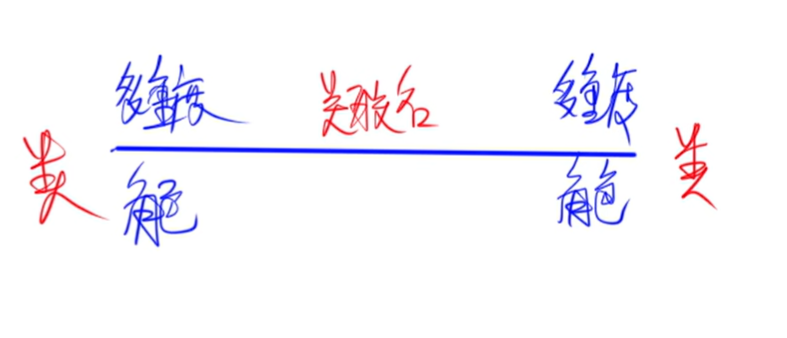 多重度 关联名 多重度
类 类
角色 角色